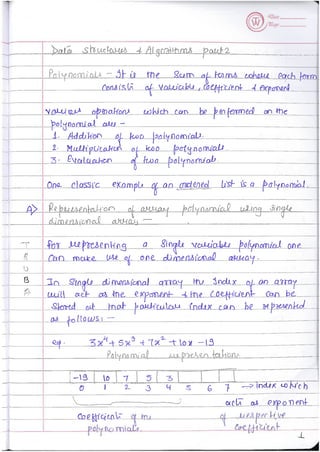 Date
Page
Data structures & Algorithms part 2
Polynomials - It is the sum of terms where each term
consists of variable, coefficient & exponent
various operations which can be performed on the
polynomial are -
1. Addition of two polynomials.
2. Multiplication of two polynomials.
3. Evaluation of two polynomials.
One classic example of an ordered list is a polynomial.
A) Representation of array polynomial using single
dimensional array -
for representing a single variable polynomial one
can make use of one dimensional array.
In Single dimensional array the Index of an array
will act as the exponent & the coefficient can be
stored at that particular index can be represented
as follows: -
eg. 3x⁴ + 5x³ + 7x² + 10x - 19
Polynomial representation
-19 10 7 5 3
0 1 2 3 4 5 6 7 → index which
acts as exponent
Coefficients of the of respective
polynomials. coefficient
1